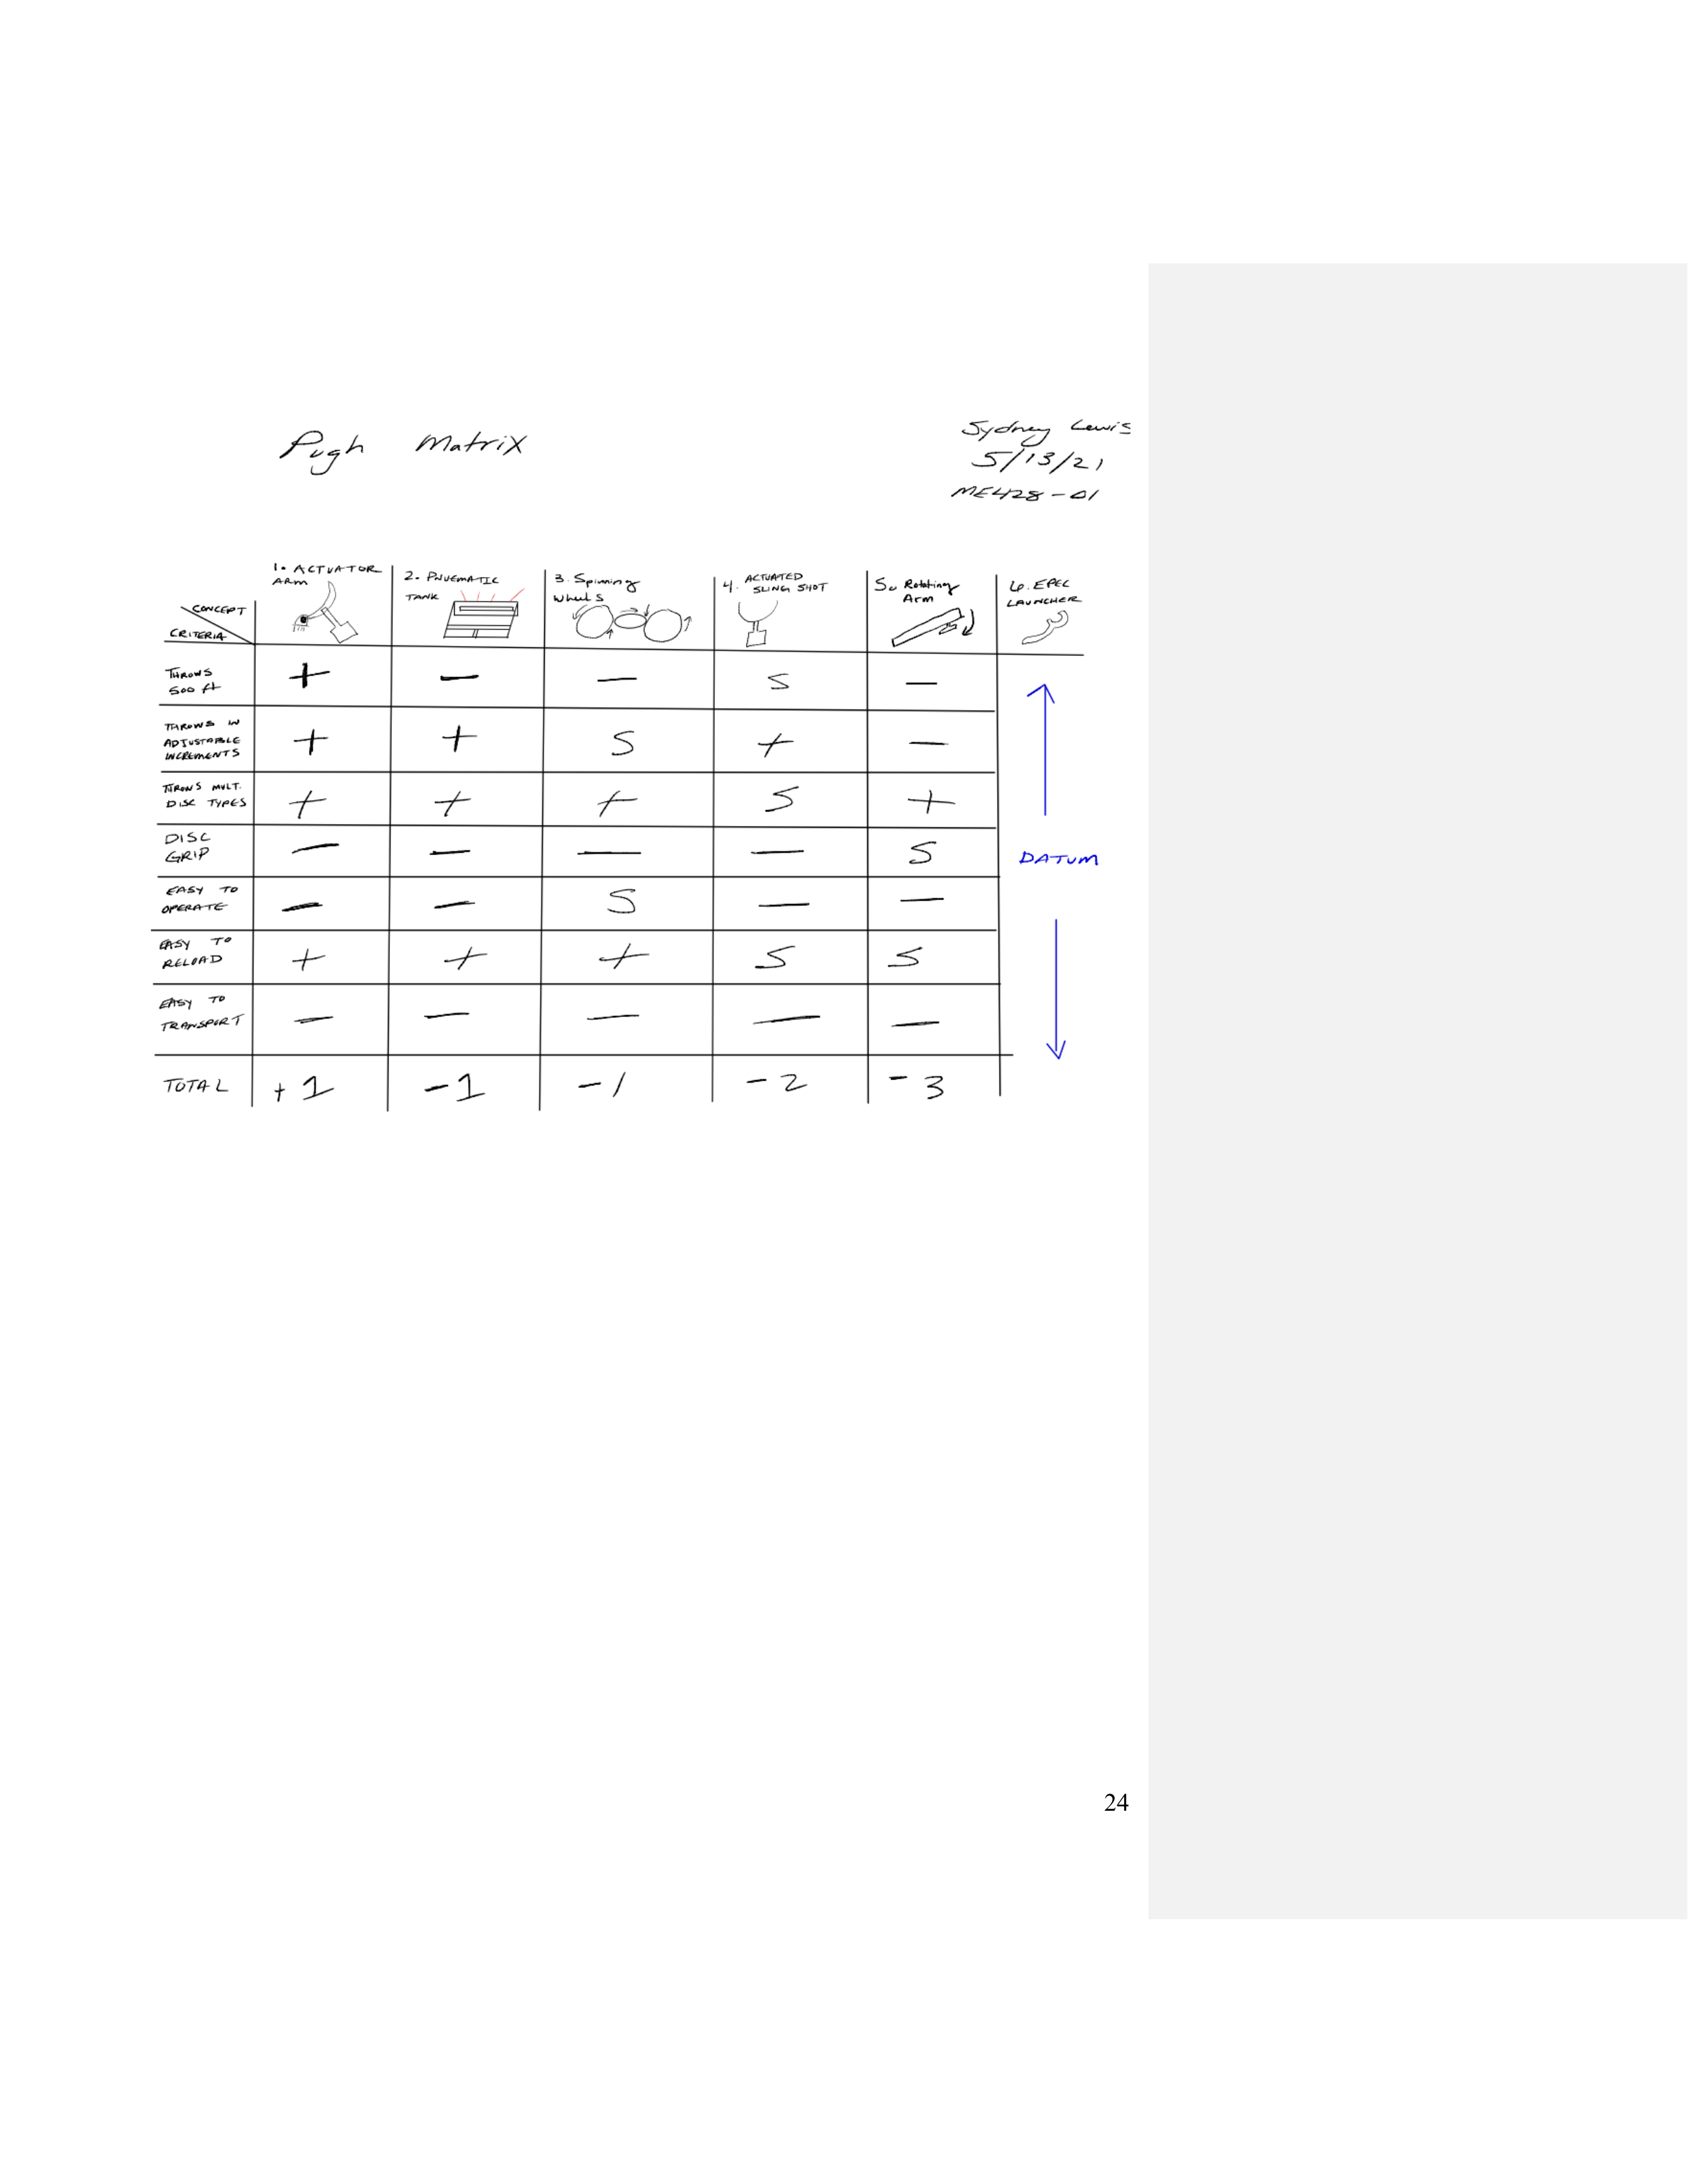 Pugh Matrix
Sydney Lewis
5/13/21
ME428-01
CONCEPT
CRITERIA
1. ACTUATOR
ARM
2. PNUEMATIC
TANK
3. Spinning
Wheels
4. ACTUATED
SLING SHOT
5. Rotating
Arm
6. EPEC
LAUNCHER
THROWS
500 ft
+ — — S —
THROWS IN
ADJUSTABLE
INCREMENTS
+ + S + —
THROWS MULT.
DISC TYPES
+ + + S +
DISC
GRIP
— — — — S
DATUM
EASY TO
OPERATE
— — S — —
EASY TO
RELOAD
+ + + S S
EASY TO
TRANSPORT
— — — — —
TOTAL +1 -1 -1 -2 -3
24